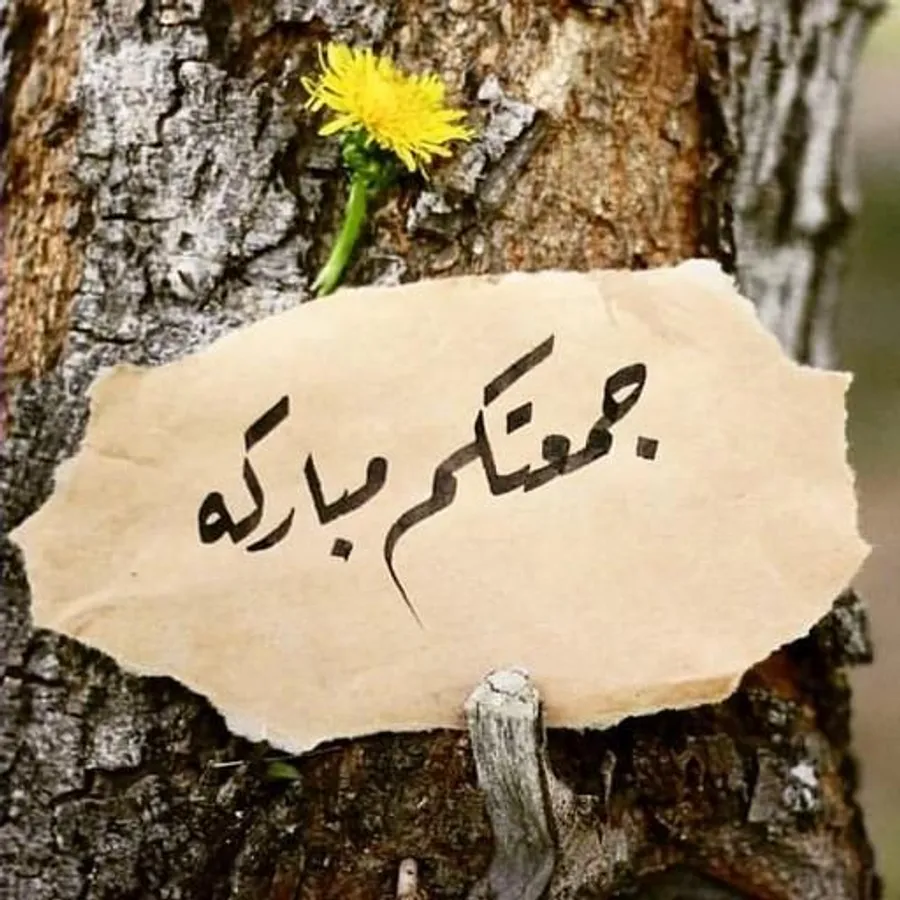 جمعتكم مباركه